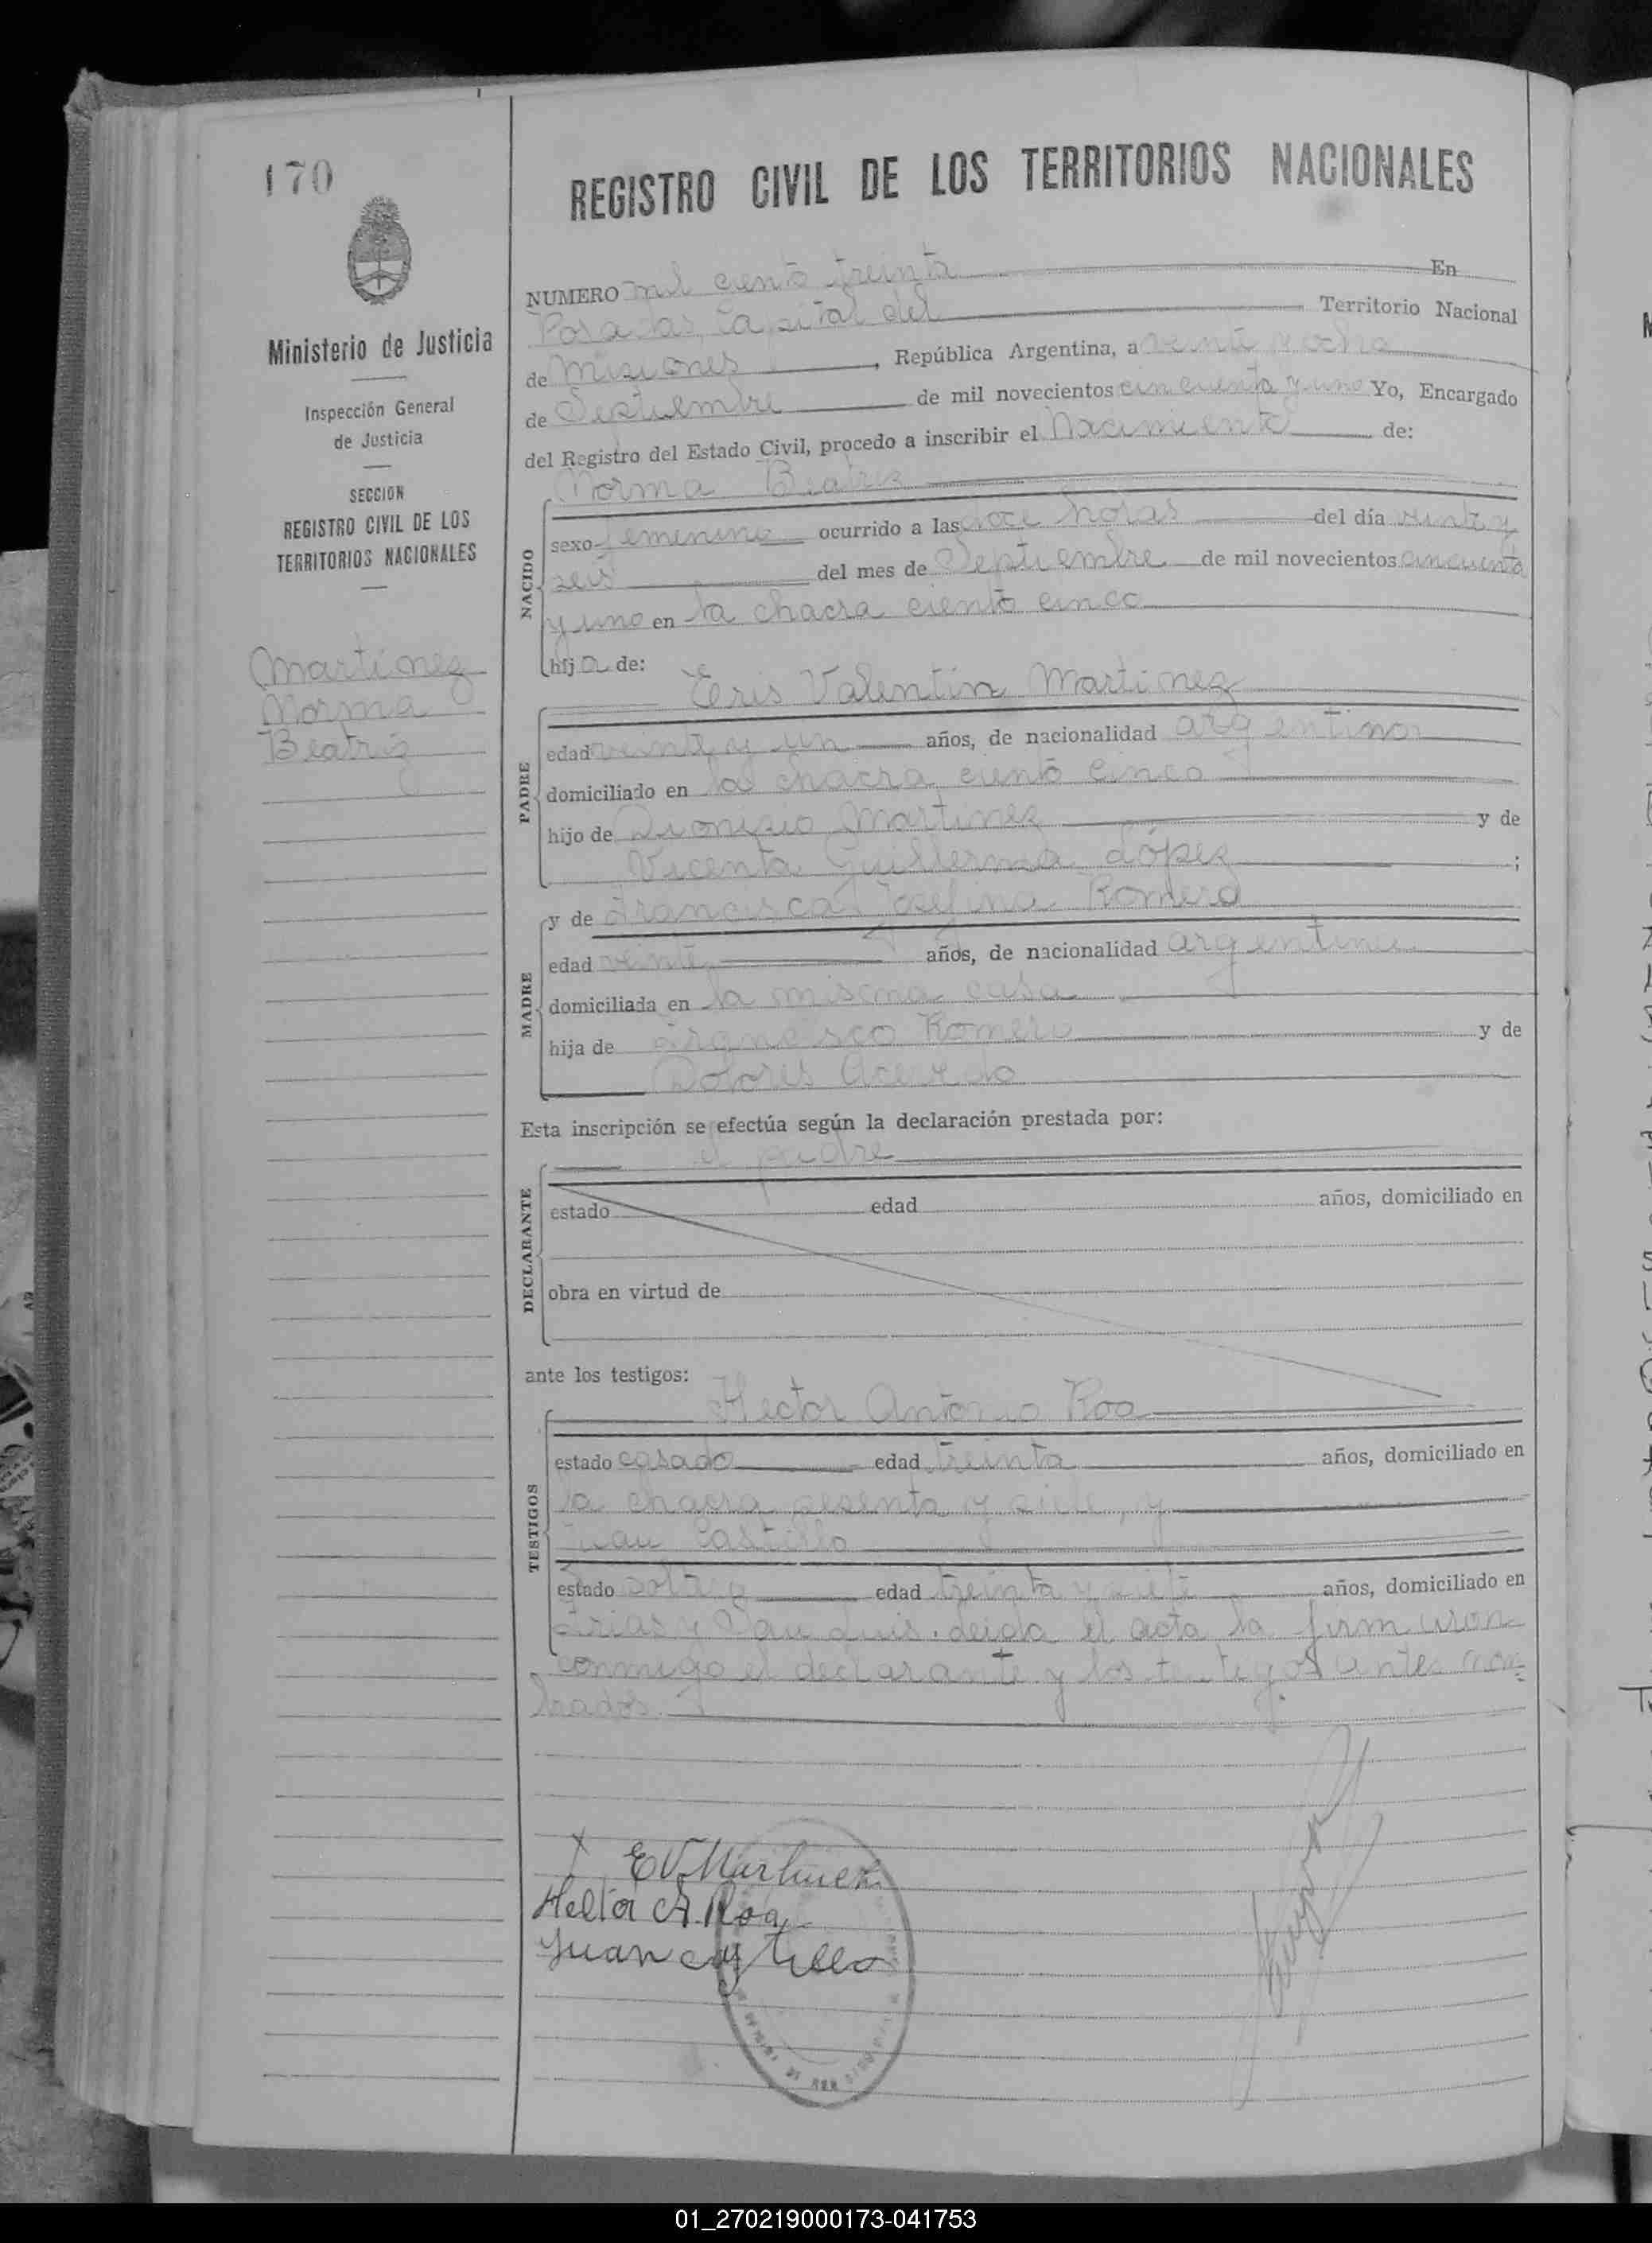 170
REGISTRO CIVIL DE LOS TERRITORIOS NACIONALES
Ministerio de Justicia
Inspección General
de Justicia
SECCION
REGISTRO CIVIL DE LOS
TERRITORIOS NACIONALES
Martinez
Norma
Beatriz
NUMERO mil ciento treinta En
Posadas Capital del Territorio Nacional
de Misiones, República Argentina, a veinte y ocho
de Septiembre de mil novecientos cincuenta y uno Yo, Encargado
del Registro del Estado Civil, procedo a inscribir el Nacimiento de:
Norma Beatriz
NACIDO
sexo femenino ocurrido a las doce horas del día veinte y
seis del mes de Septiembre de mil novecientos cincuenta
y uno en la chacra ciento cinco
hija de:
Eris Valentin Martinez
PADRE
edad veinte y un años, de nacionalidad argentino
domiciliado en la chacra ciento cinco
hijo de Dionisio Martinez y de
Vicenta Guillerma López ;
y de Francisca Josefina Romero
MADRE
edad veinte años, de nacionalidad argentina
domiciliada en la misma casa
hija de Francisco Romero y de
Dolores Acevedo
Esta inscripción se efectúa según la declaración prestada por:
el padre
DECLARANTE
estado edad años, domiciliado en
obra en virtud de
ante los testigos:
Hector Antonio Roa
TESTIGOS
estado casado edad treinta años, domiciliado en
la chacra sesenta y siete, y
Juan Castillo
estado soltero edad treinta y siete años, domiciliado en
Frias y San Luis. Leida el acta la firmaron
conmigo el declarante y los testigos antes nom=
brados.
E V Martinez
Hector A. Roa
Juan Castillo
01_270219000173-041753